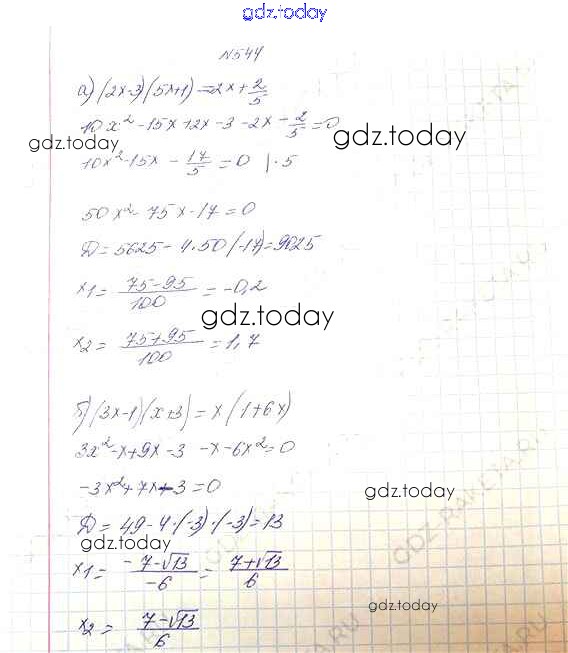 gdz.today
N544
а) (2x-3)(5x+1)=2x+2/5
10x²-15x+2x-3-2x-2/5=0
gdz.today
gdz.today
10x²-15x-17/5=0 |·5
50x²-75x-17=0
D=5625-4·50(-17)=9025
x1=(75-95)/100=-0,2
gdz.today
x2=(75+95)/100=1,7
б) (3x-1)(x+3)=x(1+6x)
3x²-x+9x-3-x-6x²=0
-3x²+7x-3=0
gdz.today
D=49-4·(-3)·(-3)=13
gdz.today
GDZ-RAKETA.RU
x1=(-7-√13)/-6=(7+√13)/6
gdz.today
x2=(7-√13)/6